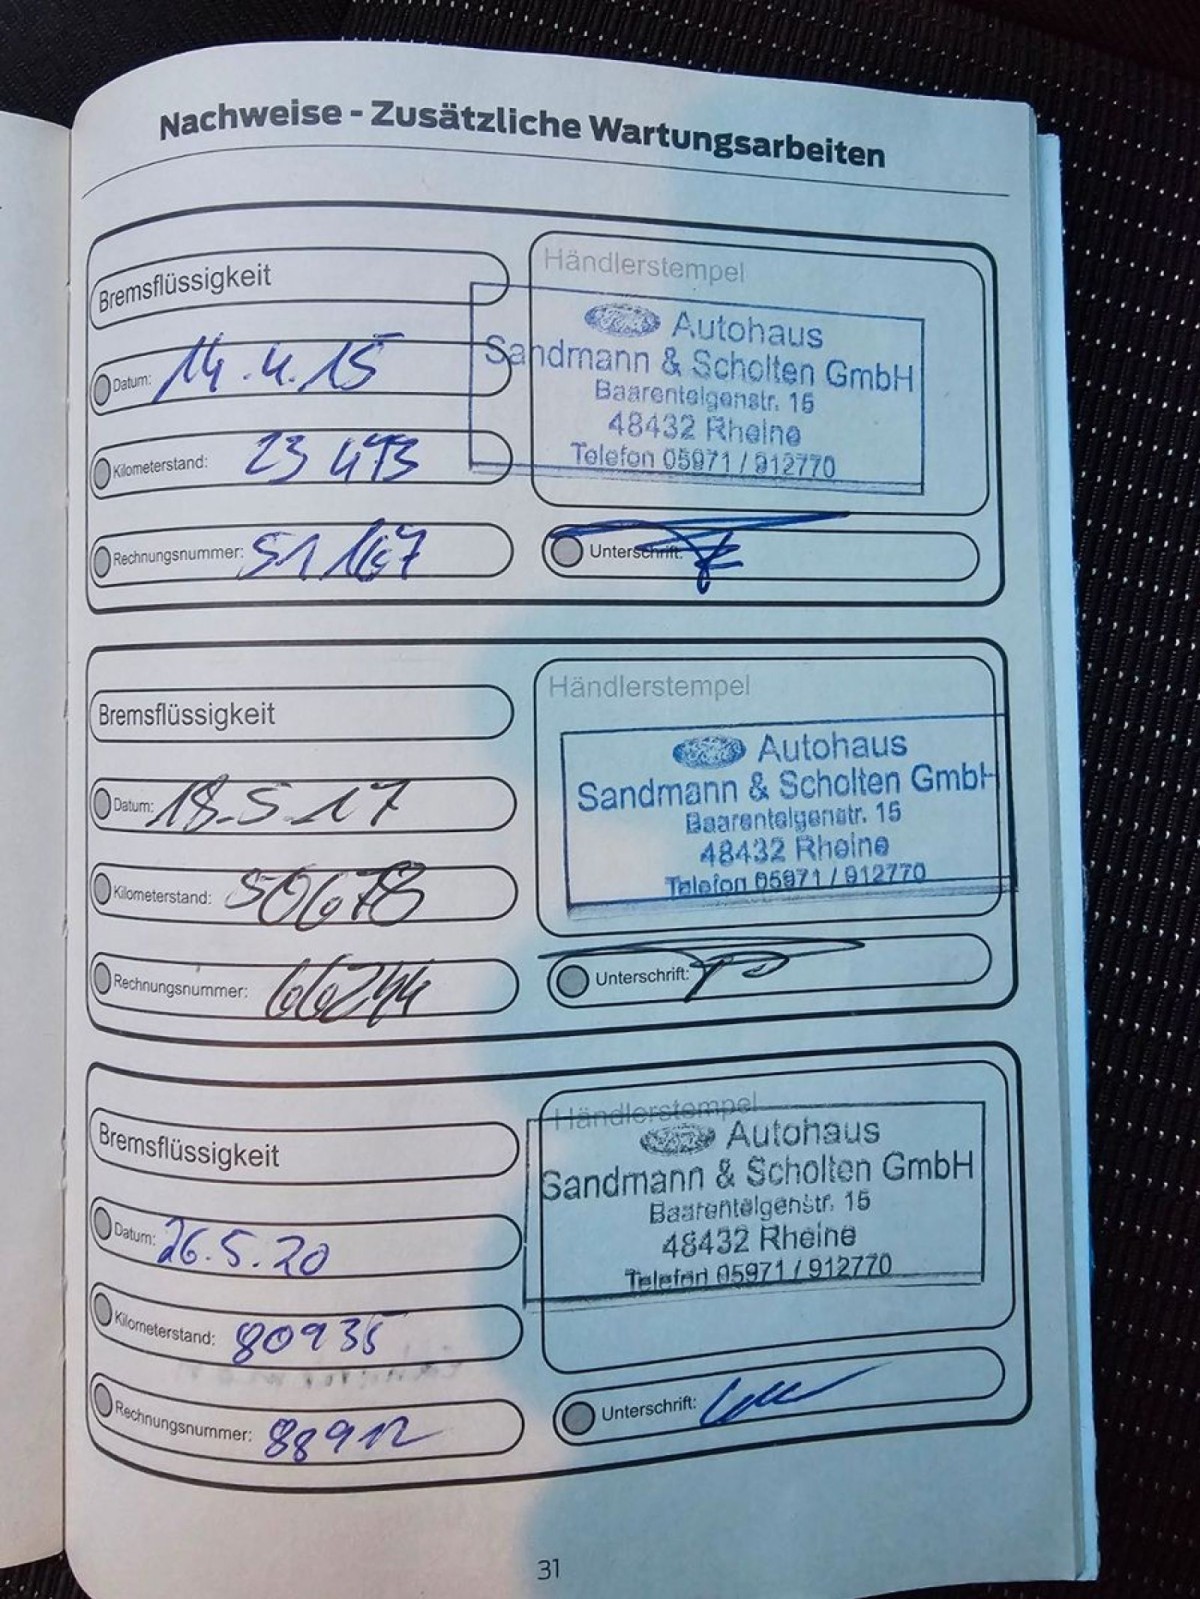 Nachweise - Zusätzliche Wartungsarbeiten
Bremsflüssigkeit
Händlerstempel
Autohaus
Sandmann & Scholten GmbH
Baarentelgenstr. 15
48432 Rheine
Telefon 05971 / 912770
Datum: 14.4.15
Kilometerstand: 23 473
Rechnungsnummer: 51167
Unterschrift:
Bremsflüssigkeit
Händlerstempel
Autohaus
Sandmann & Scholten GmbH
Baarentelgenstr. 15
48432 Rheine
Telefon 05971 / 912770
Datum: 18.5.17
Kilometerstand: 50678
Rechnungsnummer: 66244
Unterschrift:
Bremsflüssigkeit
Händlerstempel
Autohaus
Sandmann & Scholten GmbH
Baarentelgenstr. 15
48432 Rheine
Telefon 05971 / 912770
Datum: 26.5.20
Kilometerstand: 80935
Rechnungsnummer: 88912
Unterschrift:
31